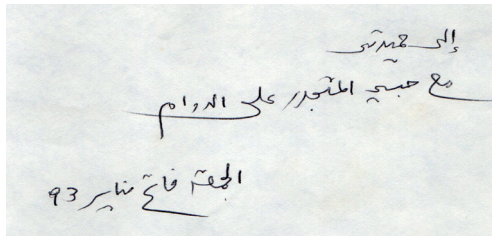 إلى حميدتي
مع حبي المتجدد على الدوام
الجمعة فاتح يناير 93